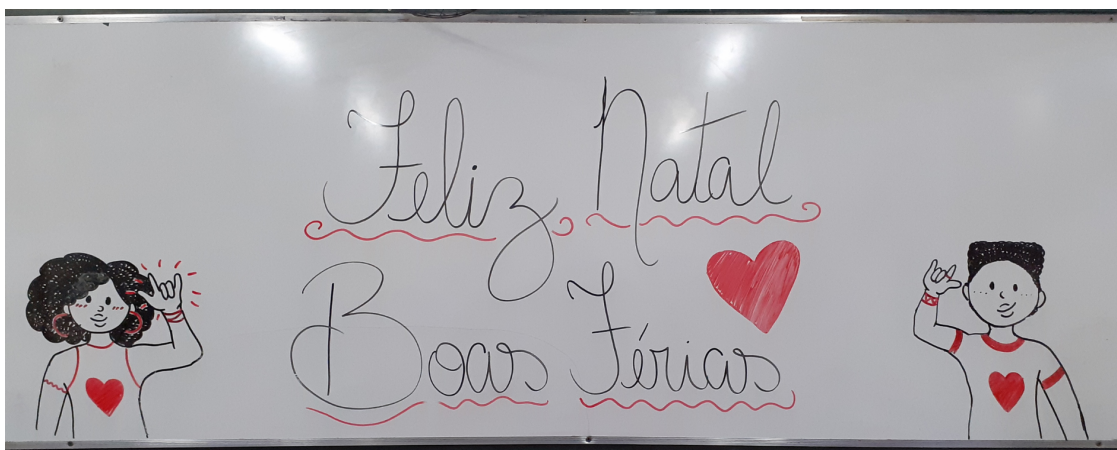 Feliz Natal
Boas Férias